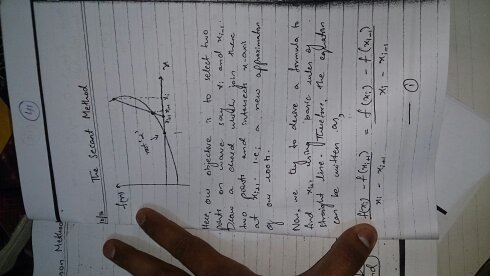 The Secant Method
f(x)
x
Here, our objective is to select two
points on curve say xi and xi-1.
Draw a chord which join these
two points and intersects x-axis
at xi+1 i.e; a new approximation
of our root.
Now, we try to derive a formula to
find xi+1 using basic rules of
straight line. Therefore, the equation
can be written as,
f(xi) - f(xi+1) = f(xi) - f(xi-1)
xi - xi+1 xi - xi-1
①
Method